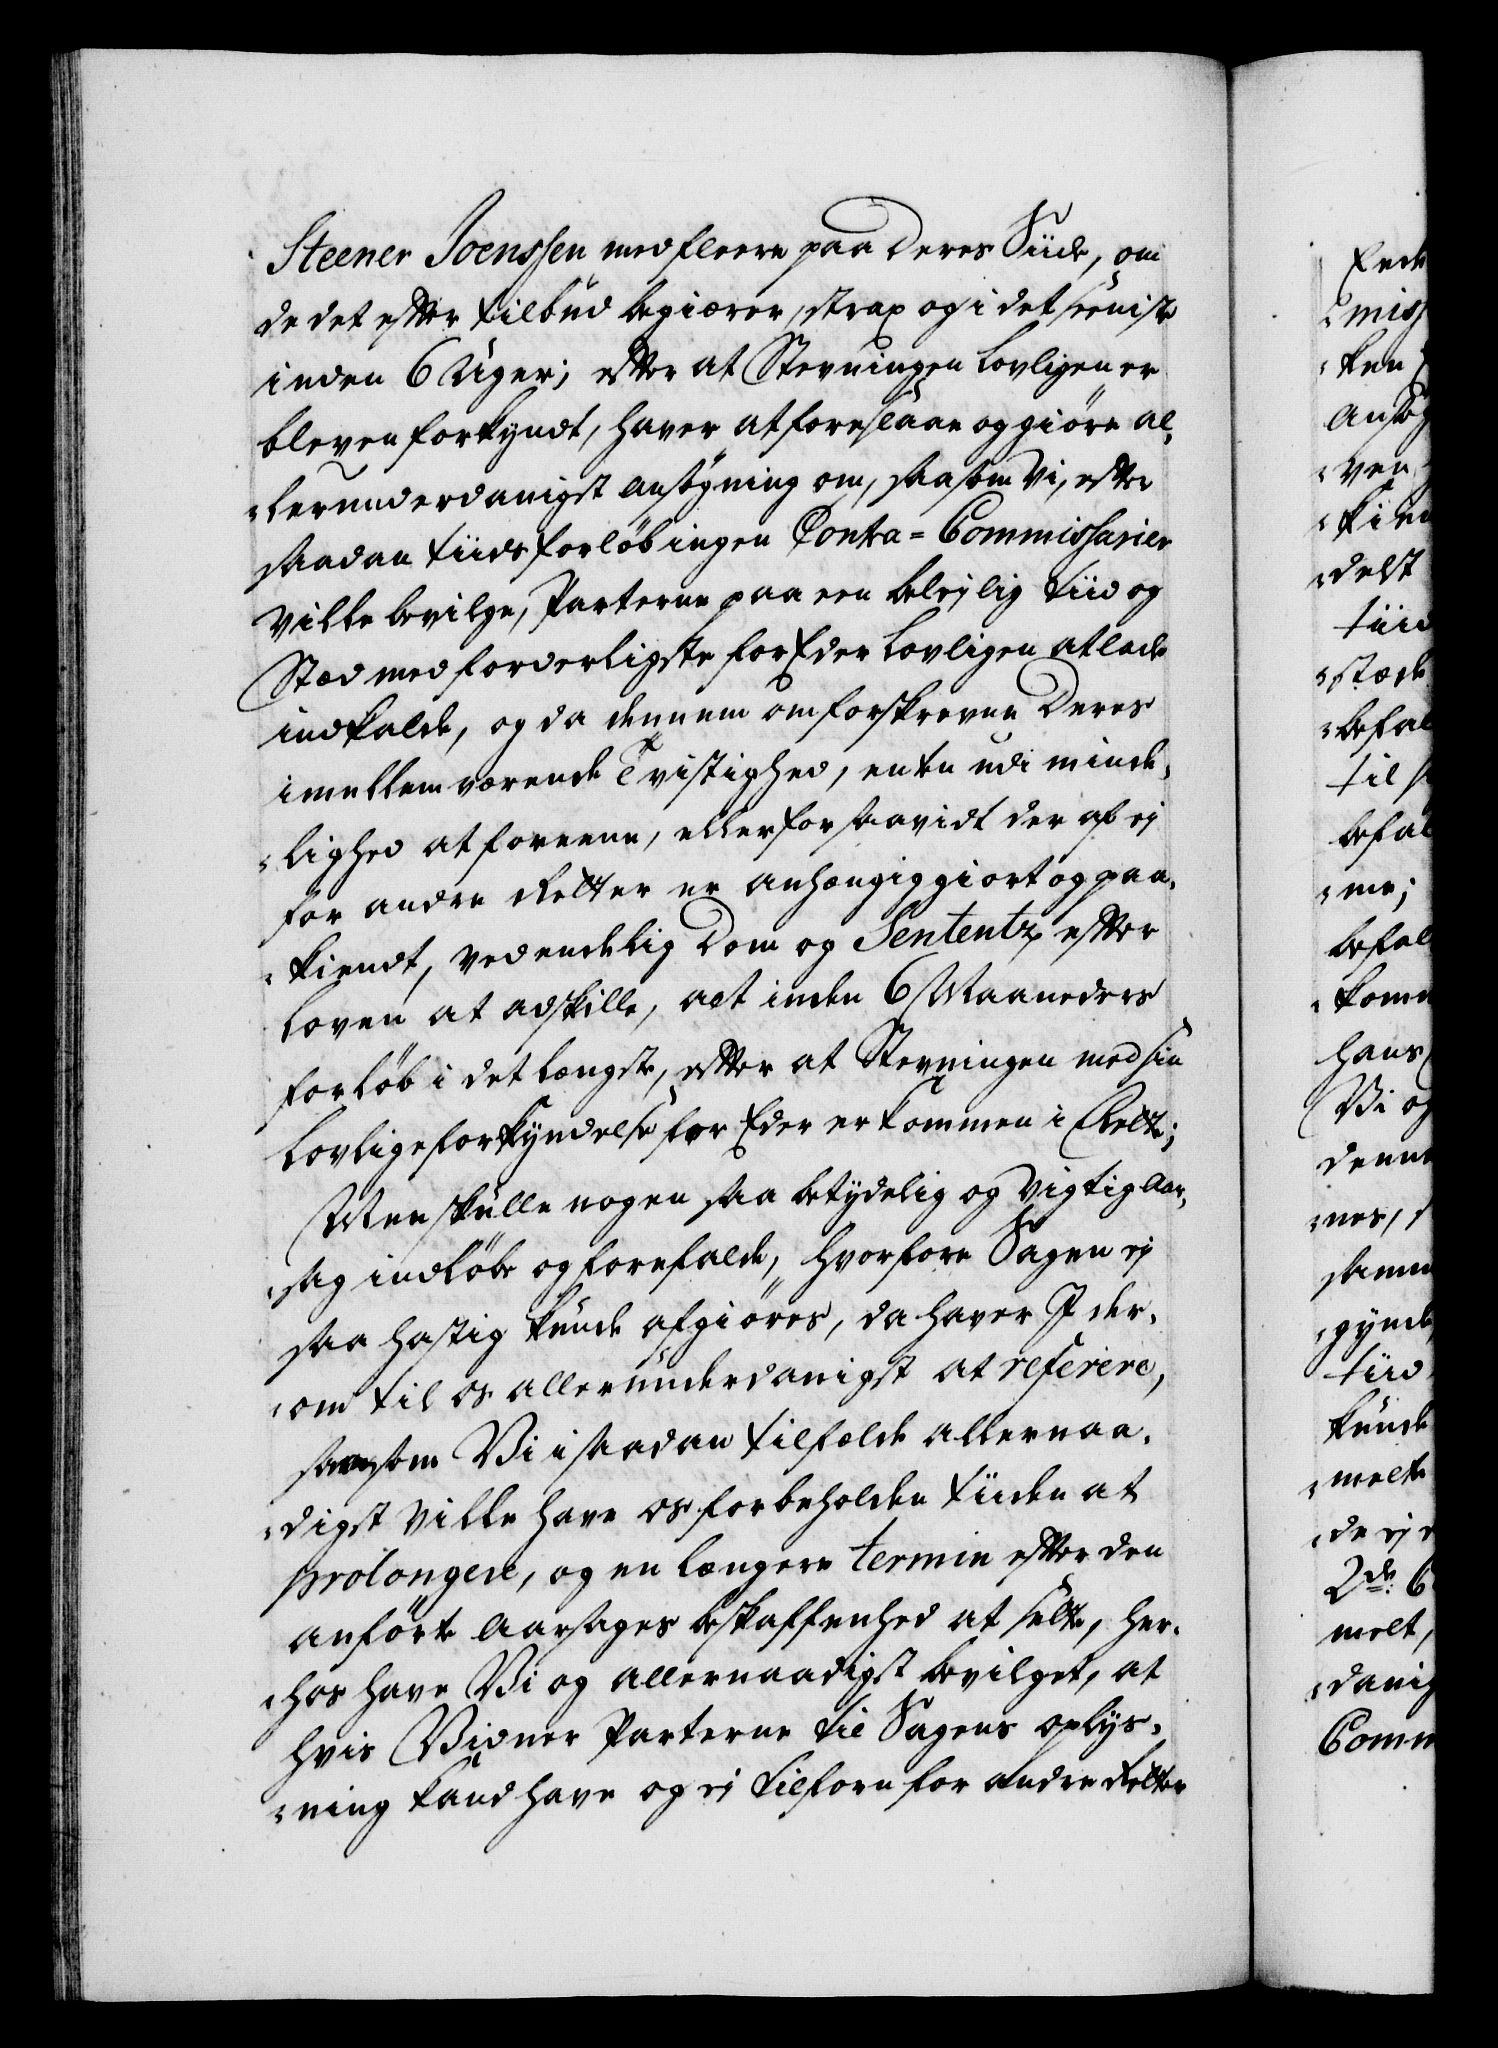 Steener Joenssen med fleere paa Deres Siide, om
de det efter tilbud begiærer, strax og i det seeniste
inden 6 Uger; efter at Stevningen lovligen er
bleven forkyndt, haver at foreslaae og giöre al-
-lerunderdanigst ansögning om, saasom Vi, efter
saadan tiids forlöb ingen Contra=Commissarier
ville bevilge, Parterne paa een beleylig tiid og
Stæd med forderligste for Eder lovligen at lade
indkalde, og da dennem om forskrevne Deres
imellem værende Tvistighed, enten udi minde-
-lighed at foreene, eller for saavidt der af ej
for andre Retter er anhængig giort og paa-
-kiendt, ved endelig Dom og Sententz efter
Loven at adskille, alt inden 6 Maaneders
forlöb i det længste, efter at Stevningen med sin
lovlige forkyndelse for Eder er kommen i Rette;
Men skulle nogen saa betydelig og vigtig Aar-
-sag indlöbe og forefalde, hvorfore Sagen ej
saa hastig kunde afgiöres, da haver I der-
-om til os allerunderdanigst at referere,
saasom Vi i saadan tilfælde allernaa-
-digst ville have os forbeholden tiiden at
prolongere, og en længere termin efter den
anförte Aarsages beskaffenhed at sette, her-
-hos have Vi og allernaadigst bevilget, at
hvis Vidner Parterne til Sagens oplys-
-ning kand have og ej tilforn for andre Retter